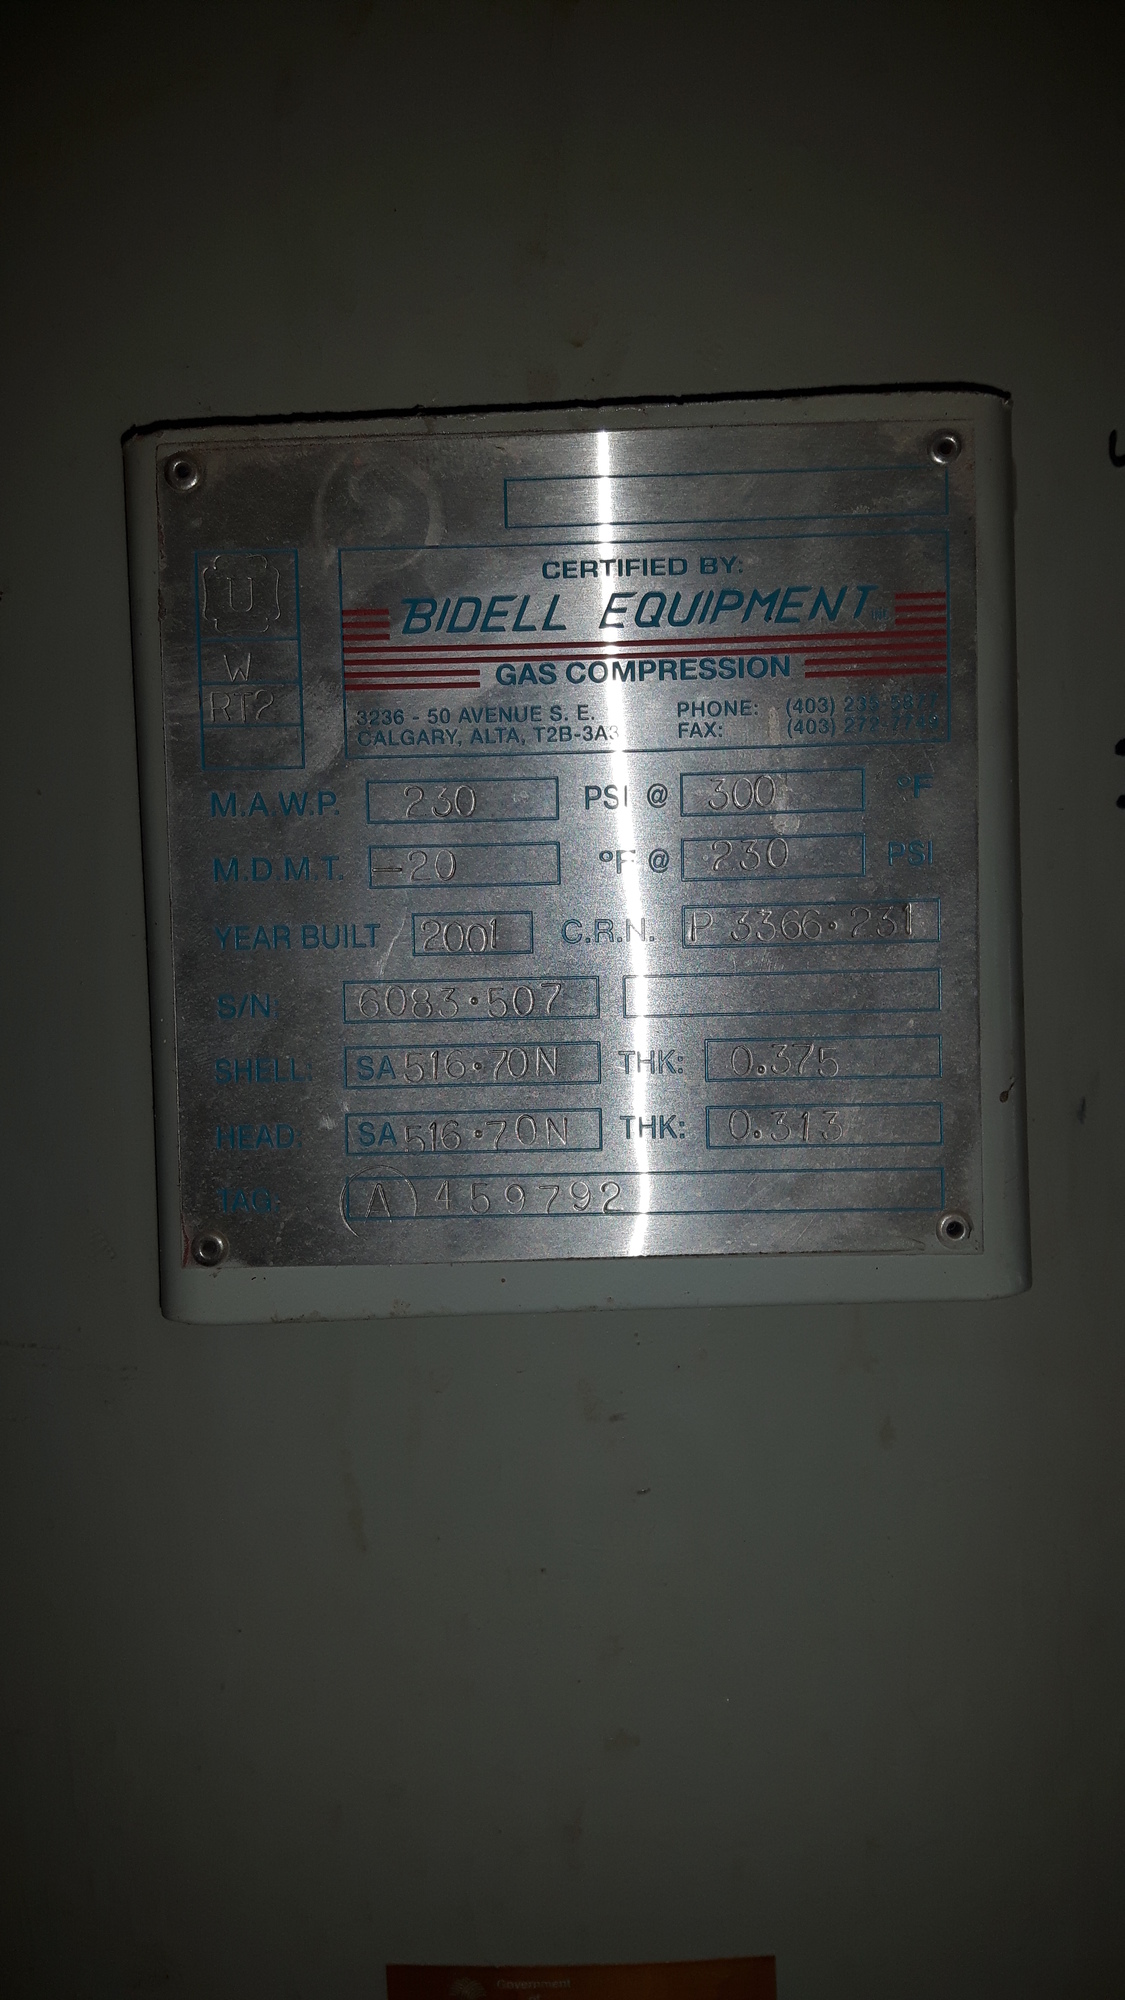 CERTIFIED BY:
U
BIDELL EQUIPMENT INC.
W
GAS COMPRESSION
RT2
3236 - 50 AVENUE S. E. PHONE: (403)
CALGARY, ALTA, T2B-3A3 FAX: (403)
M.A.W.P. 230 PSI @ 300 °F
M.D.M.T. -20 °F @ 230 PSI
YEAR BUILT 2001 C.R.N. P 3366.231
S/N: 6083.507
SHELL: SA 516.70N THK: 0.375
HEAD: SA 516.70N THK: 0.313
TAG: A 459792
Government
of